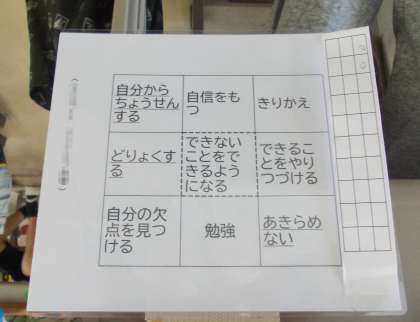 自分から
ちょうせん
する
自信をも
つ
きりかえ
どりょくす
る
できない
ことをで
きるよう
になる
できるこ
とをやり
つづける
自分の欠
点を見つ
ける
勉強
あきらめ
ない